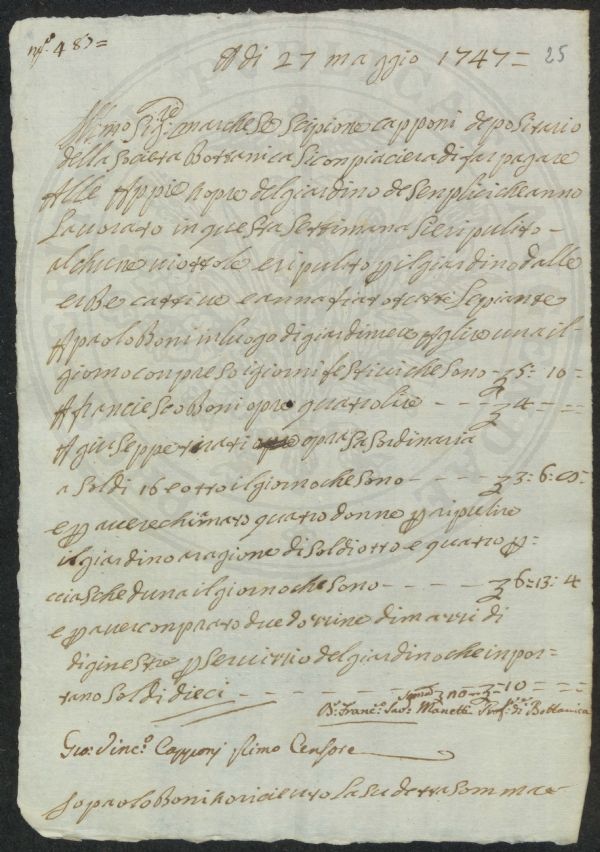 nº. 48 =
Adi 27 maggio 1747 = 25
Illmo Sigre. marchese Scipione capponi depositario
della Societa Bottanica Si conpiaciera di far pagare
Alle Appie hopre del giardino de Senplici che anno
Lavorato in questa Settimana Si e ripulito -
alchune viottole e ripulito p il giardino dalle
erbe cattive e anna fiatotutte Le piante
A paolo Boni in luogo di giardiniere A glire una il
giorno conpreso i giorni festivi che Sono - 5 = 10 =
A francesco Boni opre quatro lire - - - 4 = = =
A giuseppe opra Sa Sordinaria
a Soldi 16 e otto il giorno che Sono - - - - 3 : 6 : 05 =
e p avere chiamato quatro donne p ripulire
il giardino a ragione di Soldi otto e quatro p =
ciascheduna il giorno che Sono - - - - - 6 = 13 = 4
e p aver conprato due dozzine di mazzi di
di ginestre p Servizzio del giardino che inpor=
tano Soldi dieci - - - - - - - 10 = = =
Dr. Francº. Savº. Manetti Profre. di Bottanica
Gio: Vincº. Capponi Primo Censore
Io paolo Boni ho riceuto La Su detta Somma